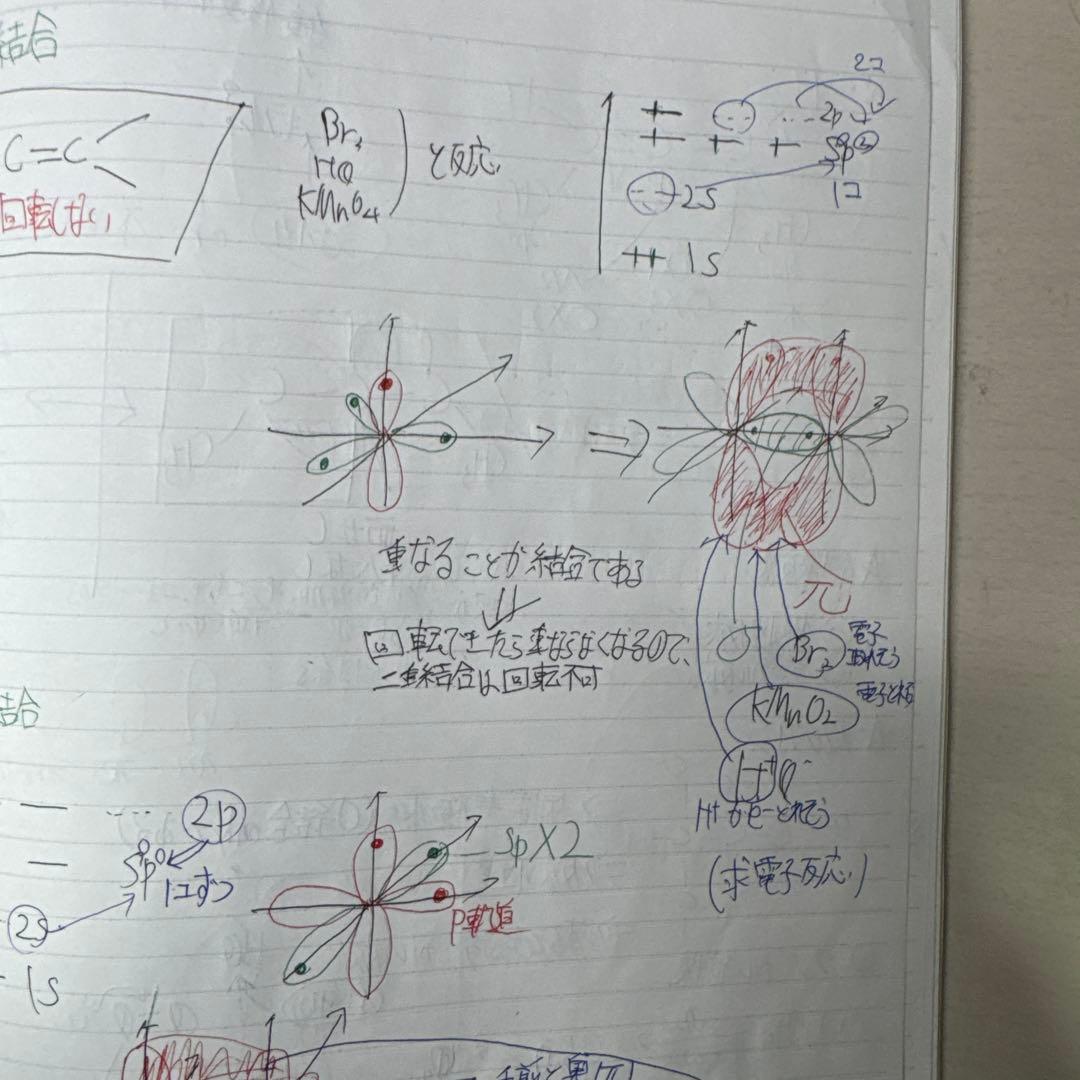 結合
C=C
回転しない
Br₂
HCl
KMnO₄
と反応
2コ
2p
sp²
2s
1コ
1s
重なることが結合である
回転できたら重ならなくなるので、
二重結合は回転不可
σ
π
Br₂
電子
KMnO₂
H⁺Cl⁻
H⁺がe⁻とれそう
(求電子反応)
結合
2p
sp
1コずつ
2s
1s
sp×2
p軌道